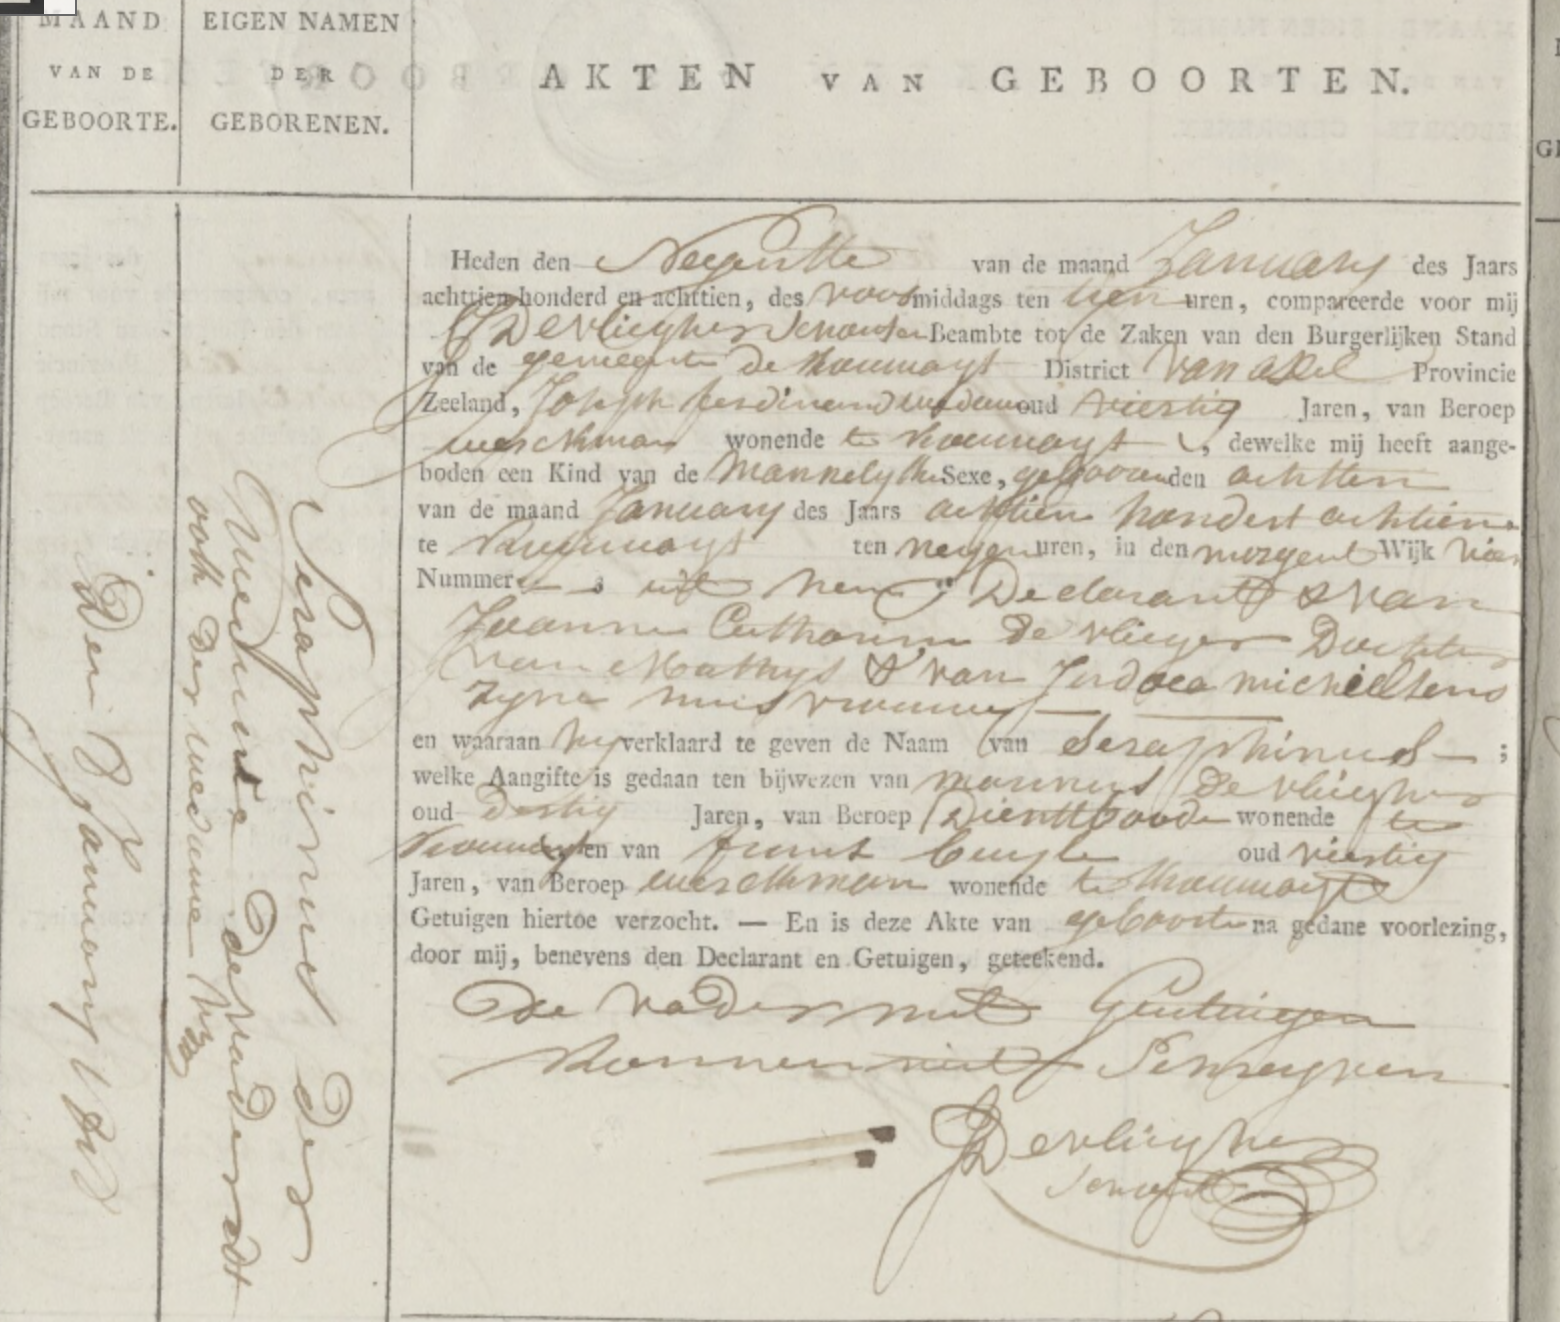 MAAND
VAN DE
GEBOORTE.
EIGEN NAMEN
DER
GEBORENEN.
AKTEN VAN GEBOORTEN.
Den January
Seraphinus der
Weduwe de vader sdt
ook der weduwe
Heden den Negentte van de maand January des Jaars
achttien honderd en achttien, des voor middags ten tien uren, compareerde voor mij
J De vliegher Schouten Beambte tot de Zaken van den Burgerlijken Stand
van de gemeente de Koewagt District van axel Provincie
Zeeland, Joseph ferdinand oud viertig Jaren, van Beroep
werckman wonende te Koewagt, dewelke mij heeft aange-
boden een Kind van de Mannelyke Sexe, gebooren den achtten
van de maand January des Jaars achtien hondert achtien
te Koewagt ten negen uren, in den morgent Wijk vier
Nummer uit hem Declarant & van
Joanna Catharina De vlieger Dochter
van Mathys & van Judoca michielsens
zyne huisvrouwe
en waaraan hy verklaard te geven de Naam van Seraphinus ;
welke Aangifte is gedaan ten bijwezen van marinus de vliegher
oud dertig Jaren, van Beroep Dienttboode wonende te
Kouwagt en van oud viertig
Jaren, van Beroep werckman wonende te Kouwagte
Getuigen hiertoe verzocht. — En is deze Akte van geboorte na gedane voorlezing,
door mij, benevens den Declarant en Getuigen, geteekend.
De vader met Getuigen
Konnen niet Schryven
J Devliegher
Schout